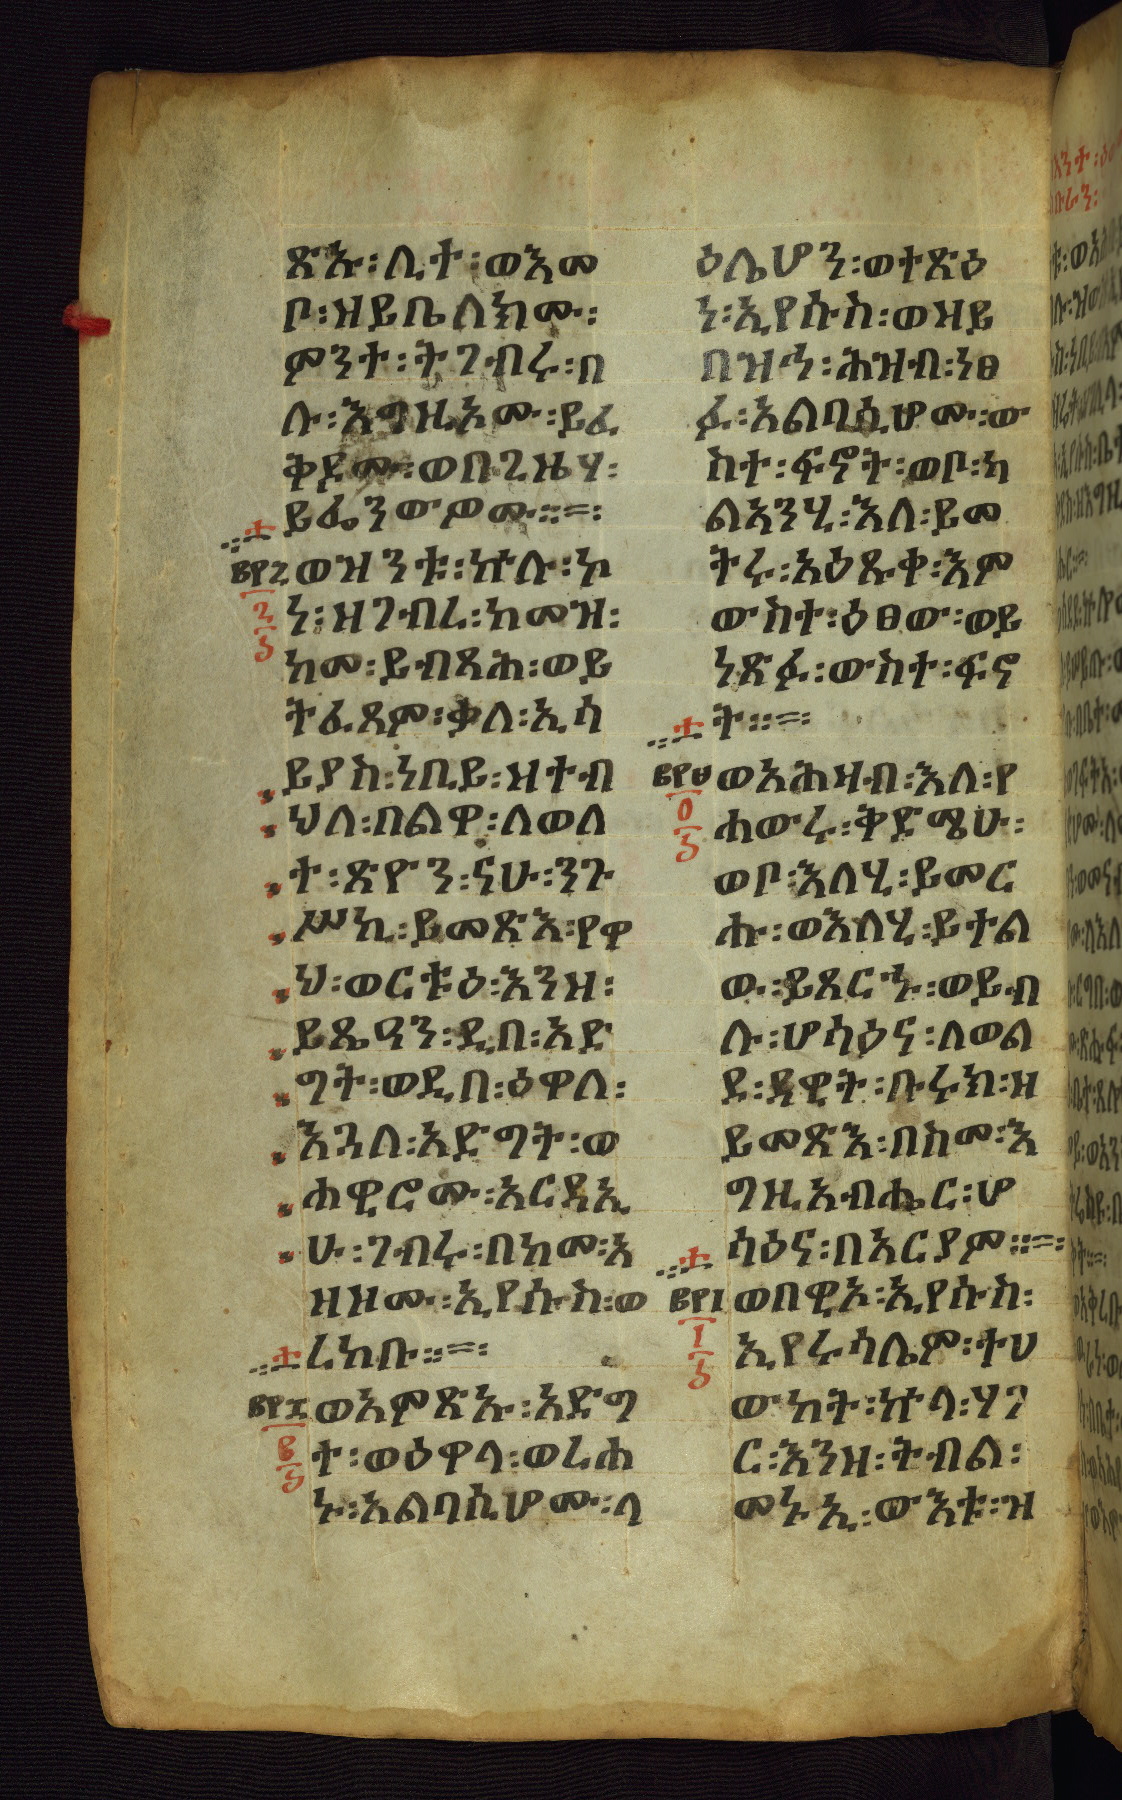 ጽኡ፡ሊተ፡ወእመ
ቦ፡ዝይቤለክሙ፡
ምንተ፡ትገብሩ፡በ
ሉ፡እግዚእሙ፡ይፈ
ቅዶሙ፡ወበጊዜሃ፡
ይፌንውዎሙ።=፡
ወዝንቱ፡ኵሉ፡ኮ
ነ፡ዘገብረ፡ከመዝ፡
ከመ፡ይብጻሕ፡ወይ
ትፈጸም፡ቃለ፡ኢሳ
ይያስ፡ነቢይ፡ዝተብ
ህለ፡በልዋ፡ለወለ
ተ፡ጽዮን፡ናሁ፡ንጉ
ሥኪ፡ይመጽእ፡የዋ
ህ፡ወርቱዕ፡እንዘ፡
ይጼዓን፡ዲበ፡እድ
ግት፡ወዲበ፡ዕዋለ፡
እጓለ፡እድግት፡ወ
ሐዊሮሙ፡አርዳኢ
ሁ፡ገብሩ፡በከመ፡አ
ዘዞሙ፡ኢየሱስ፡ወ
ረከቡ።=፡
ወአምጽኡ፡እድግ
ተ፡ወዕዋላ፡ወረሐ
ኑ፡አልባሲሆሙ፡ላ
ዕሌሆን፡ወተጽዕ
ነ፡ኢየሱስ፡ወዝይ
በዝኅ፡ሕዝብ፡ነፀ
ፉ፡አልባሲሆሙ፡ው
ስተ፡ፍኖት፡ወቦ፡ካ
ልኣንሂ፡እለ፡ይመ
ትሩ፡አዕጹቀ፡እም
ውስተ፡ዕፀው፡ወይ
ነጽፉ፡ውስተ፡ፍኖ
ት።=፡
ወአሕዛብ፡እለ፡የ
ሐውሩ፡ቅድሜሁ፡
ወቦ፡እለሂ፡ይመር
ሑ፡ወእለሂ፡ይተል
ዉ፡ይጸርኁ፡ወይብ
ሉ፡ሆሳዕና፡ለወል
ደ፡ዳዊት፡ቡሩክ፡ዘ
ይመጽእ፡በስመ፡እ
ግዚአብሔር፡ሆ
ሳዕና፡በአርያም።=፡
ወበዊኦ፡ኢየሱስ፡
ኢየሩሳሌም፡ተሀ
ውከት፡ኵላ፡ሃገ
ር፡እንዘ፡ትብል፡
መኑ፡ኢ፡ውእቱ፡ዝ